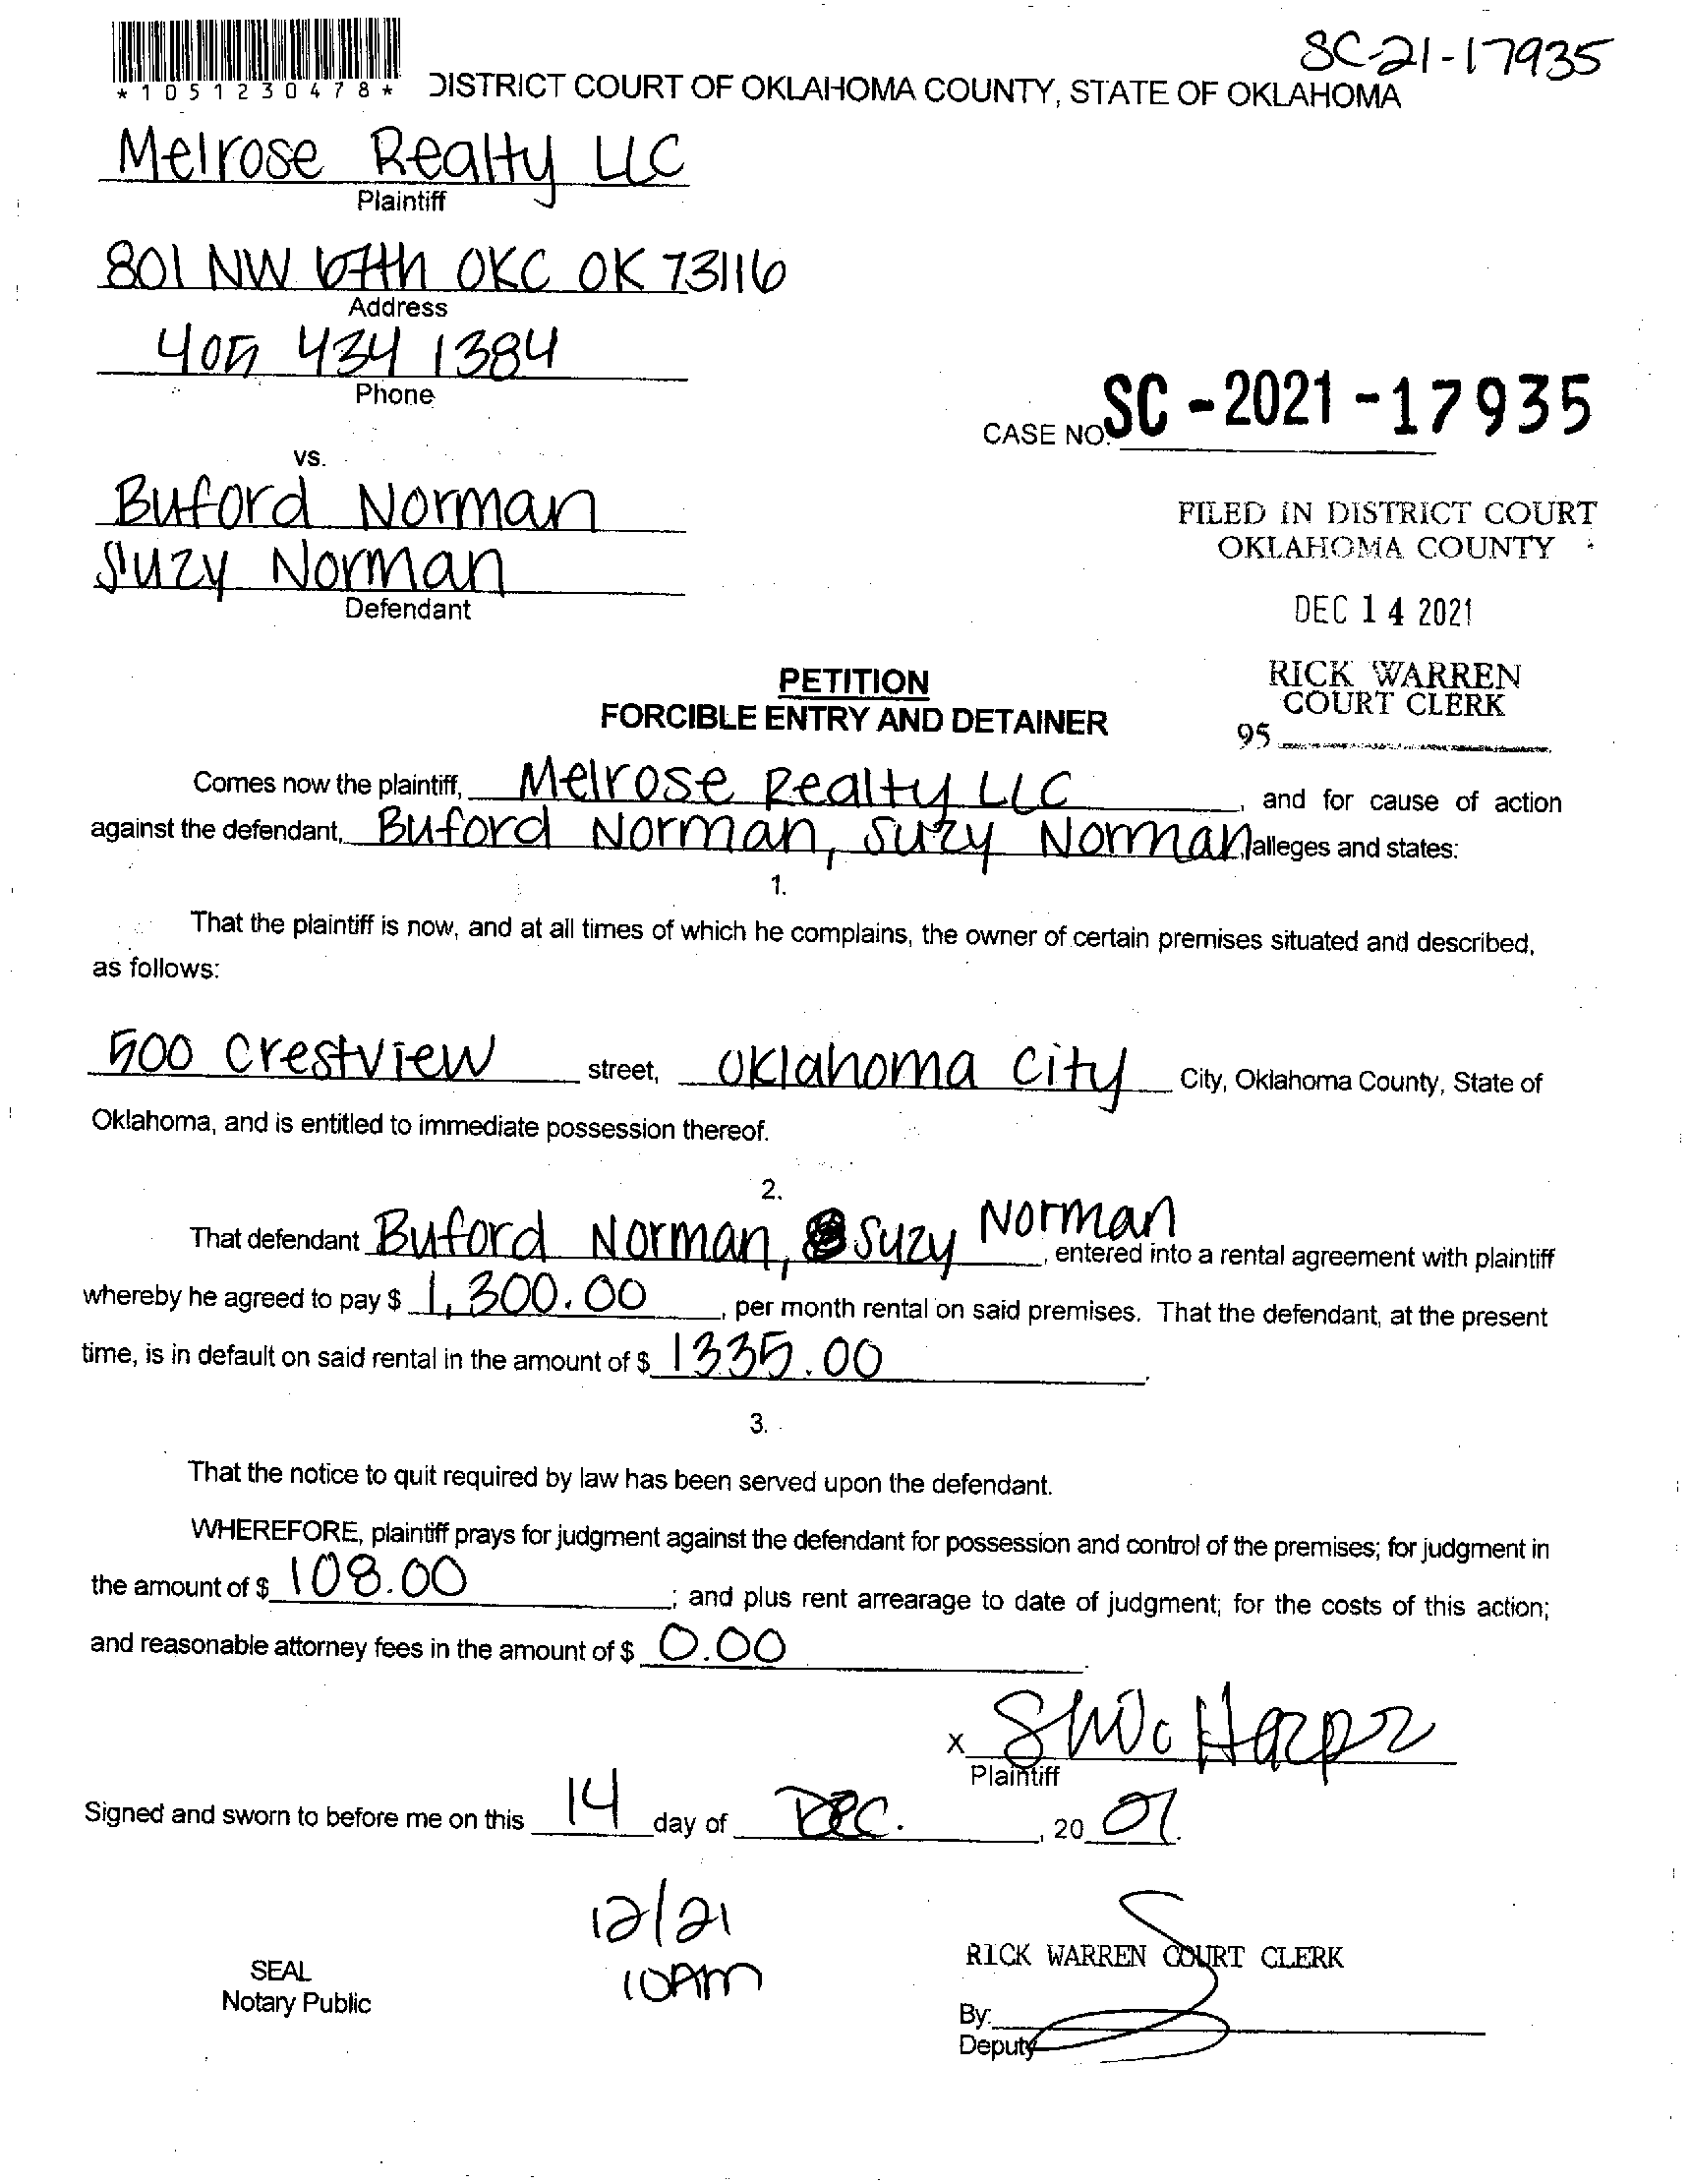 SC-21-17935
*1051230478*
DISTRICT COURT OF OKLAHOMA COUNTY, STATE OF OKLAHOMA
Melrose Realty LLC
Plaintiff
801 NW 67th OKC OK 73116
Address
405 434 1384
Phone
CASE NO. SC-2021-17935
vs.
Buford Norman
Suzy Norman
Defendant
FILED IN DISTRICT COURT
OKLAHOMA COUNTY
DEC 14 2021
RICK WARREN
COURT CLERK
95
PETITION
FORCIBLE ENTRY AND DETAINER
Comes now the plaintiff, Melrose Realty LLC, and for cause of action
against the defendant, Buford Norman, Suzy Norman, alleges and states:
1.
That the plaintiff is now, and at all times of which he complains, the owner of certain premises situated and described,
as follows:
500 Crestview street, Oklahoma City City, Oklahoma County, State of
Oklahoma, and is entitled to immediate possession thereof.
2.
That defendant Buford Norman, Suzy Norman, entered into a rental agreement with plaintiff
whereby he agreed to pay $ 1,300.00, per month rental on said premises. That the defendant, at the present
time, is in default on said rental in the amount of $ 1335.00.
3.
That the notice to quit required by law has been served upon the defendant.
WHEREFORE, plaintiff prays for judgment against the defendant for possession and control of the premises; for judgment in
the amount of $ 108.00; and plus rent arrearage to date of judgment; for the costs of this action;
and reasonable attorney fees in the amount of $ 0.00.
x
Plaintiff
Signed and sworn to before me on this 14 day of Dec., 20
12/21
10AM
SEAL
Notary Public
RICK WARREN COURT CLERK
By:
Deputy